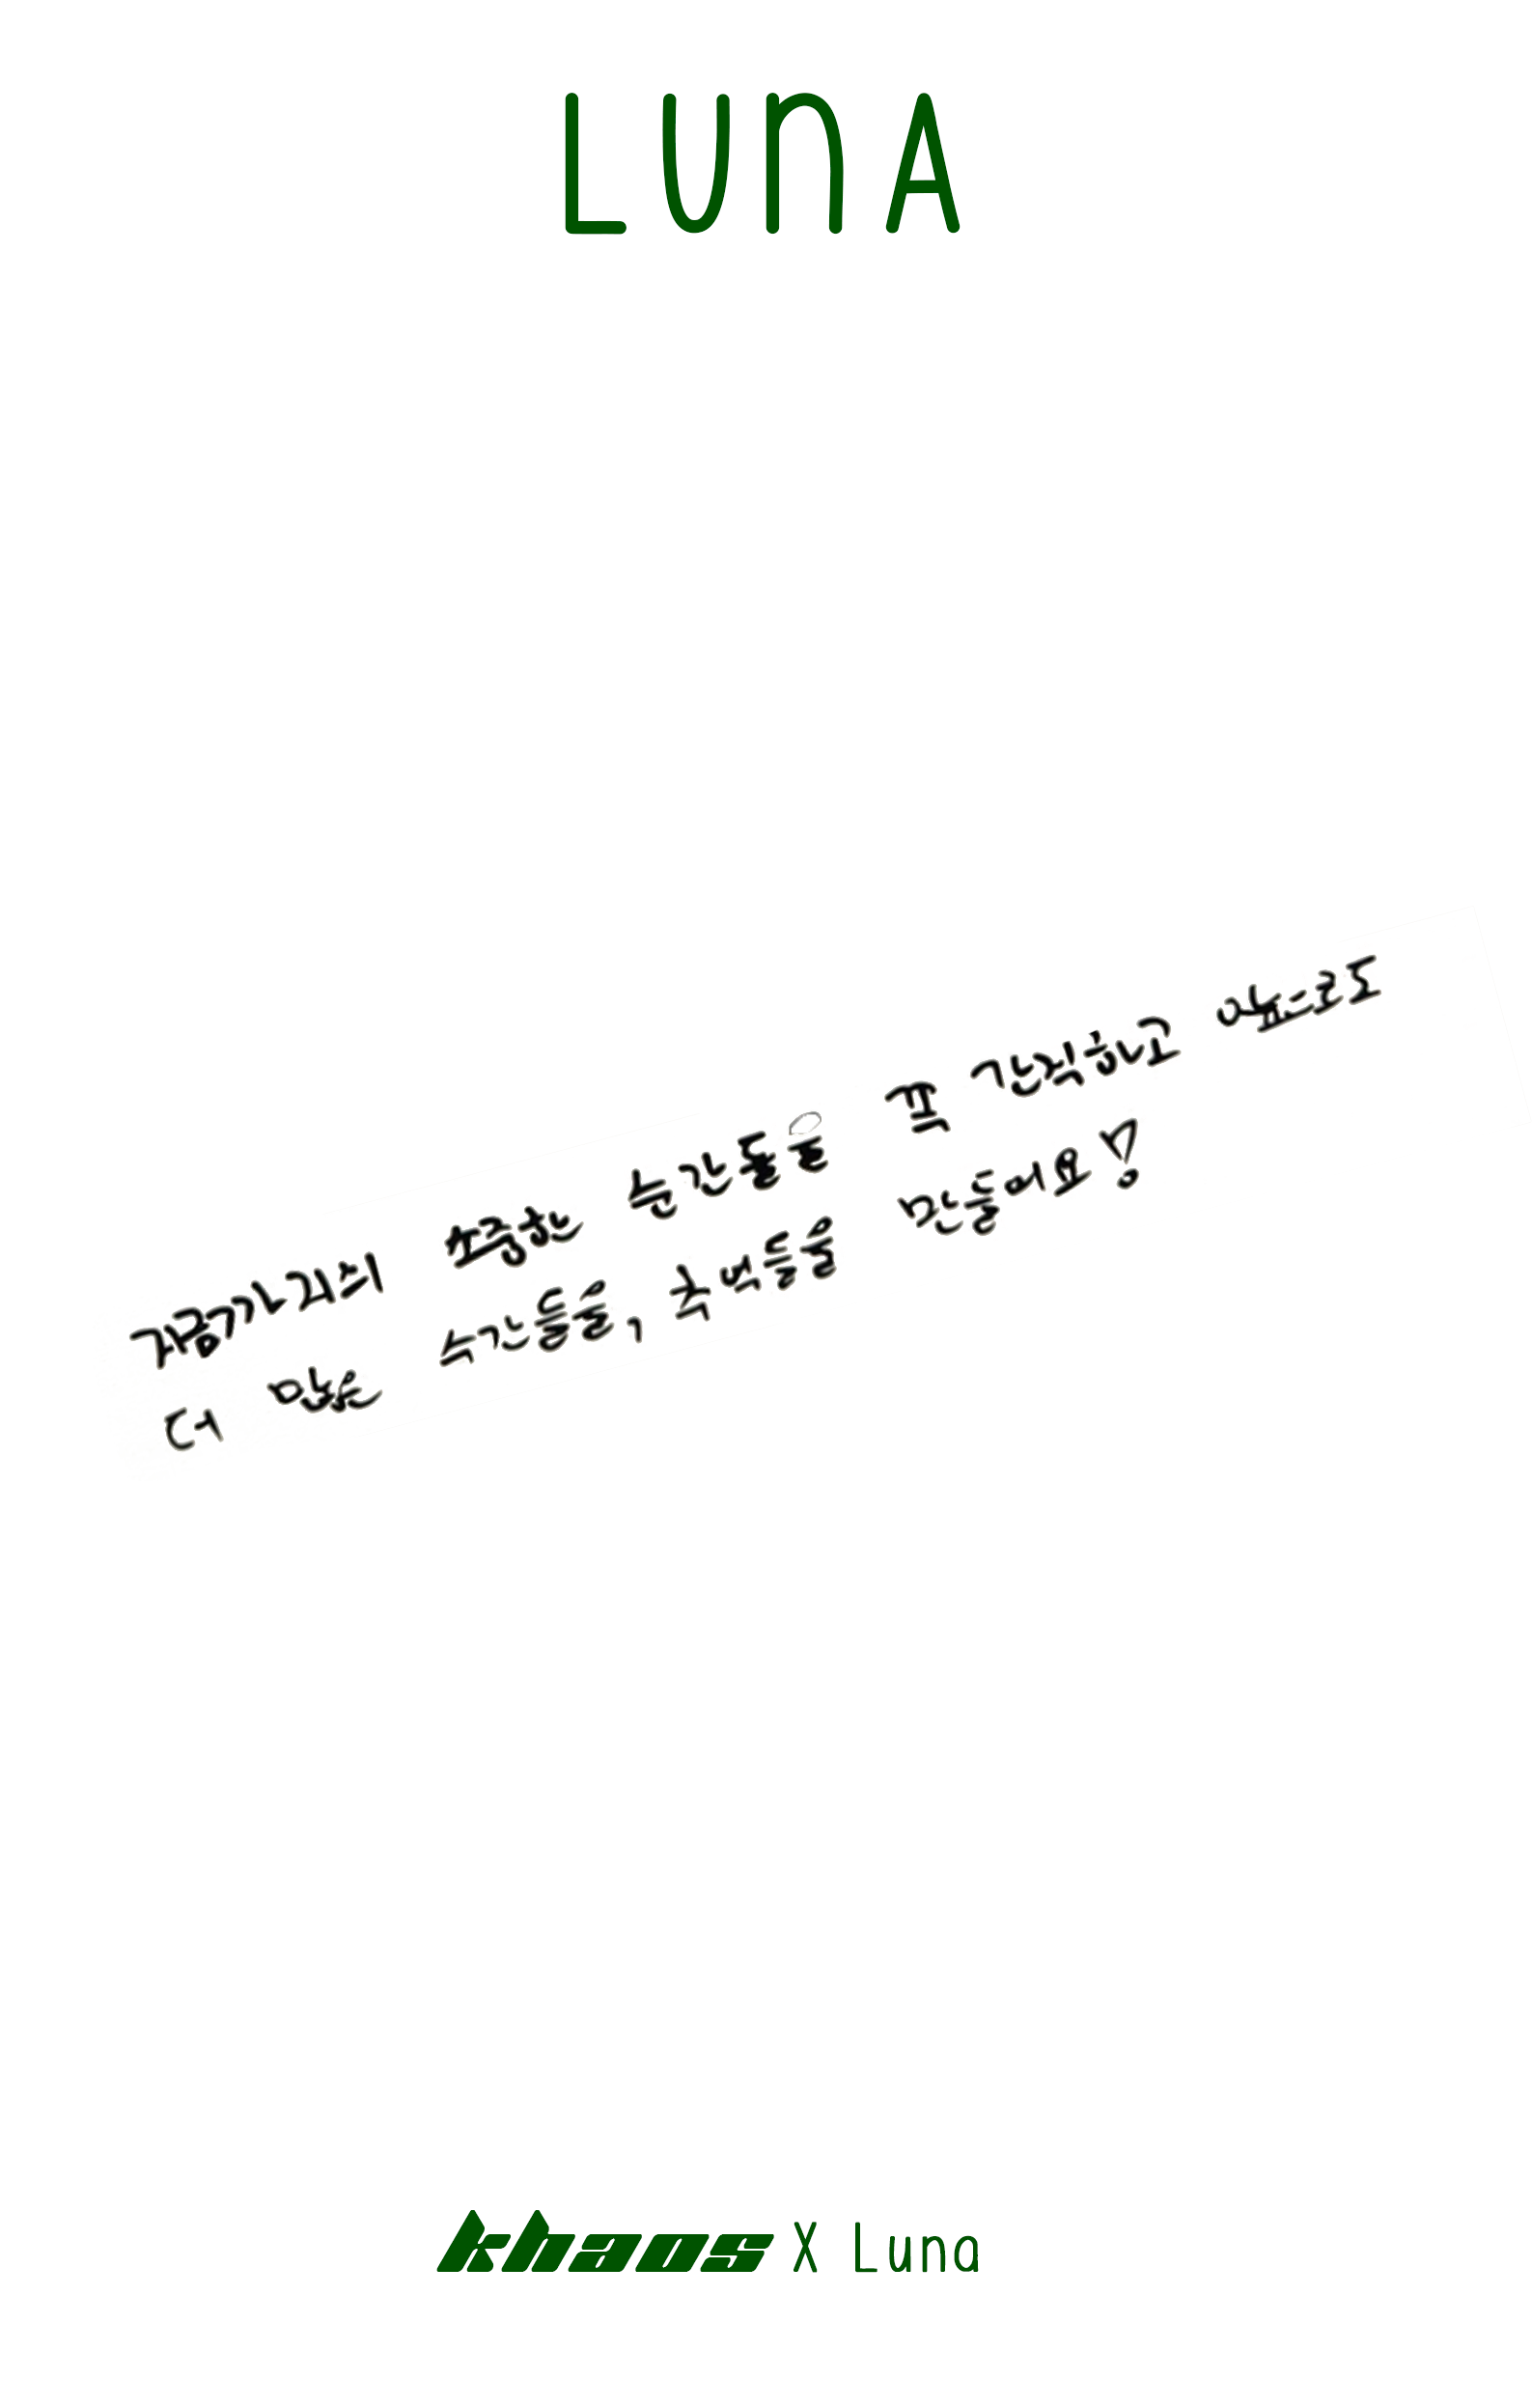 LUNA
지금까지의 소중한 순간들을 꼭 간직하고 앞으로도
더 많은 순간들을, 추억들을 만들어요!
khaos X Luna